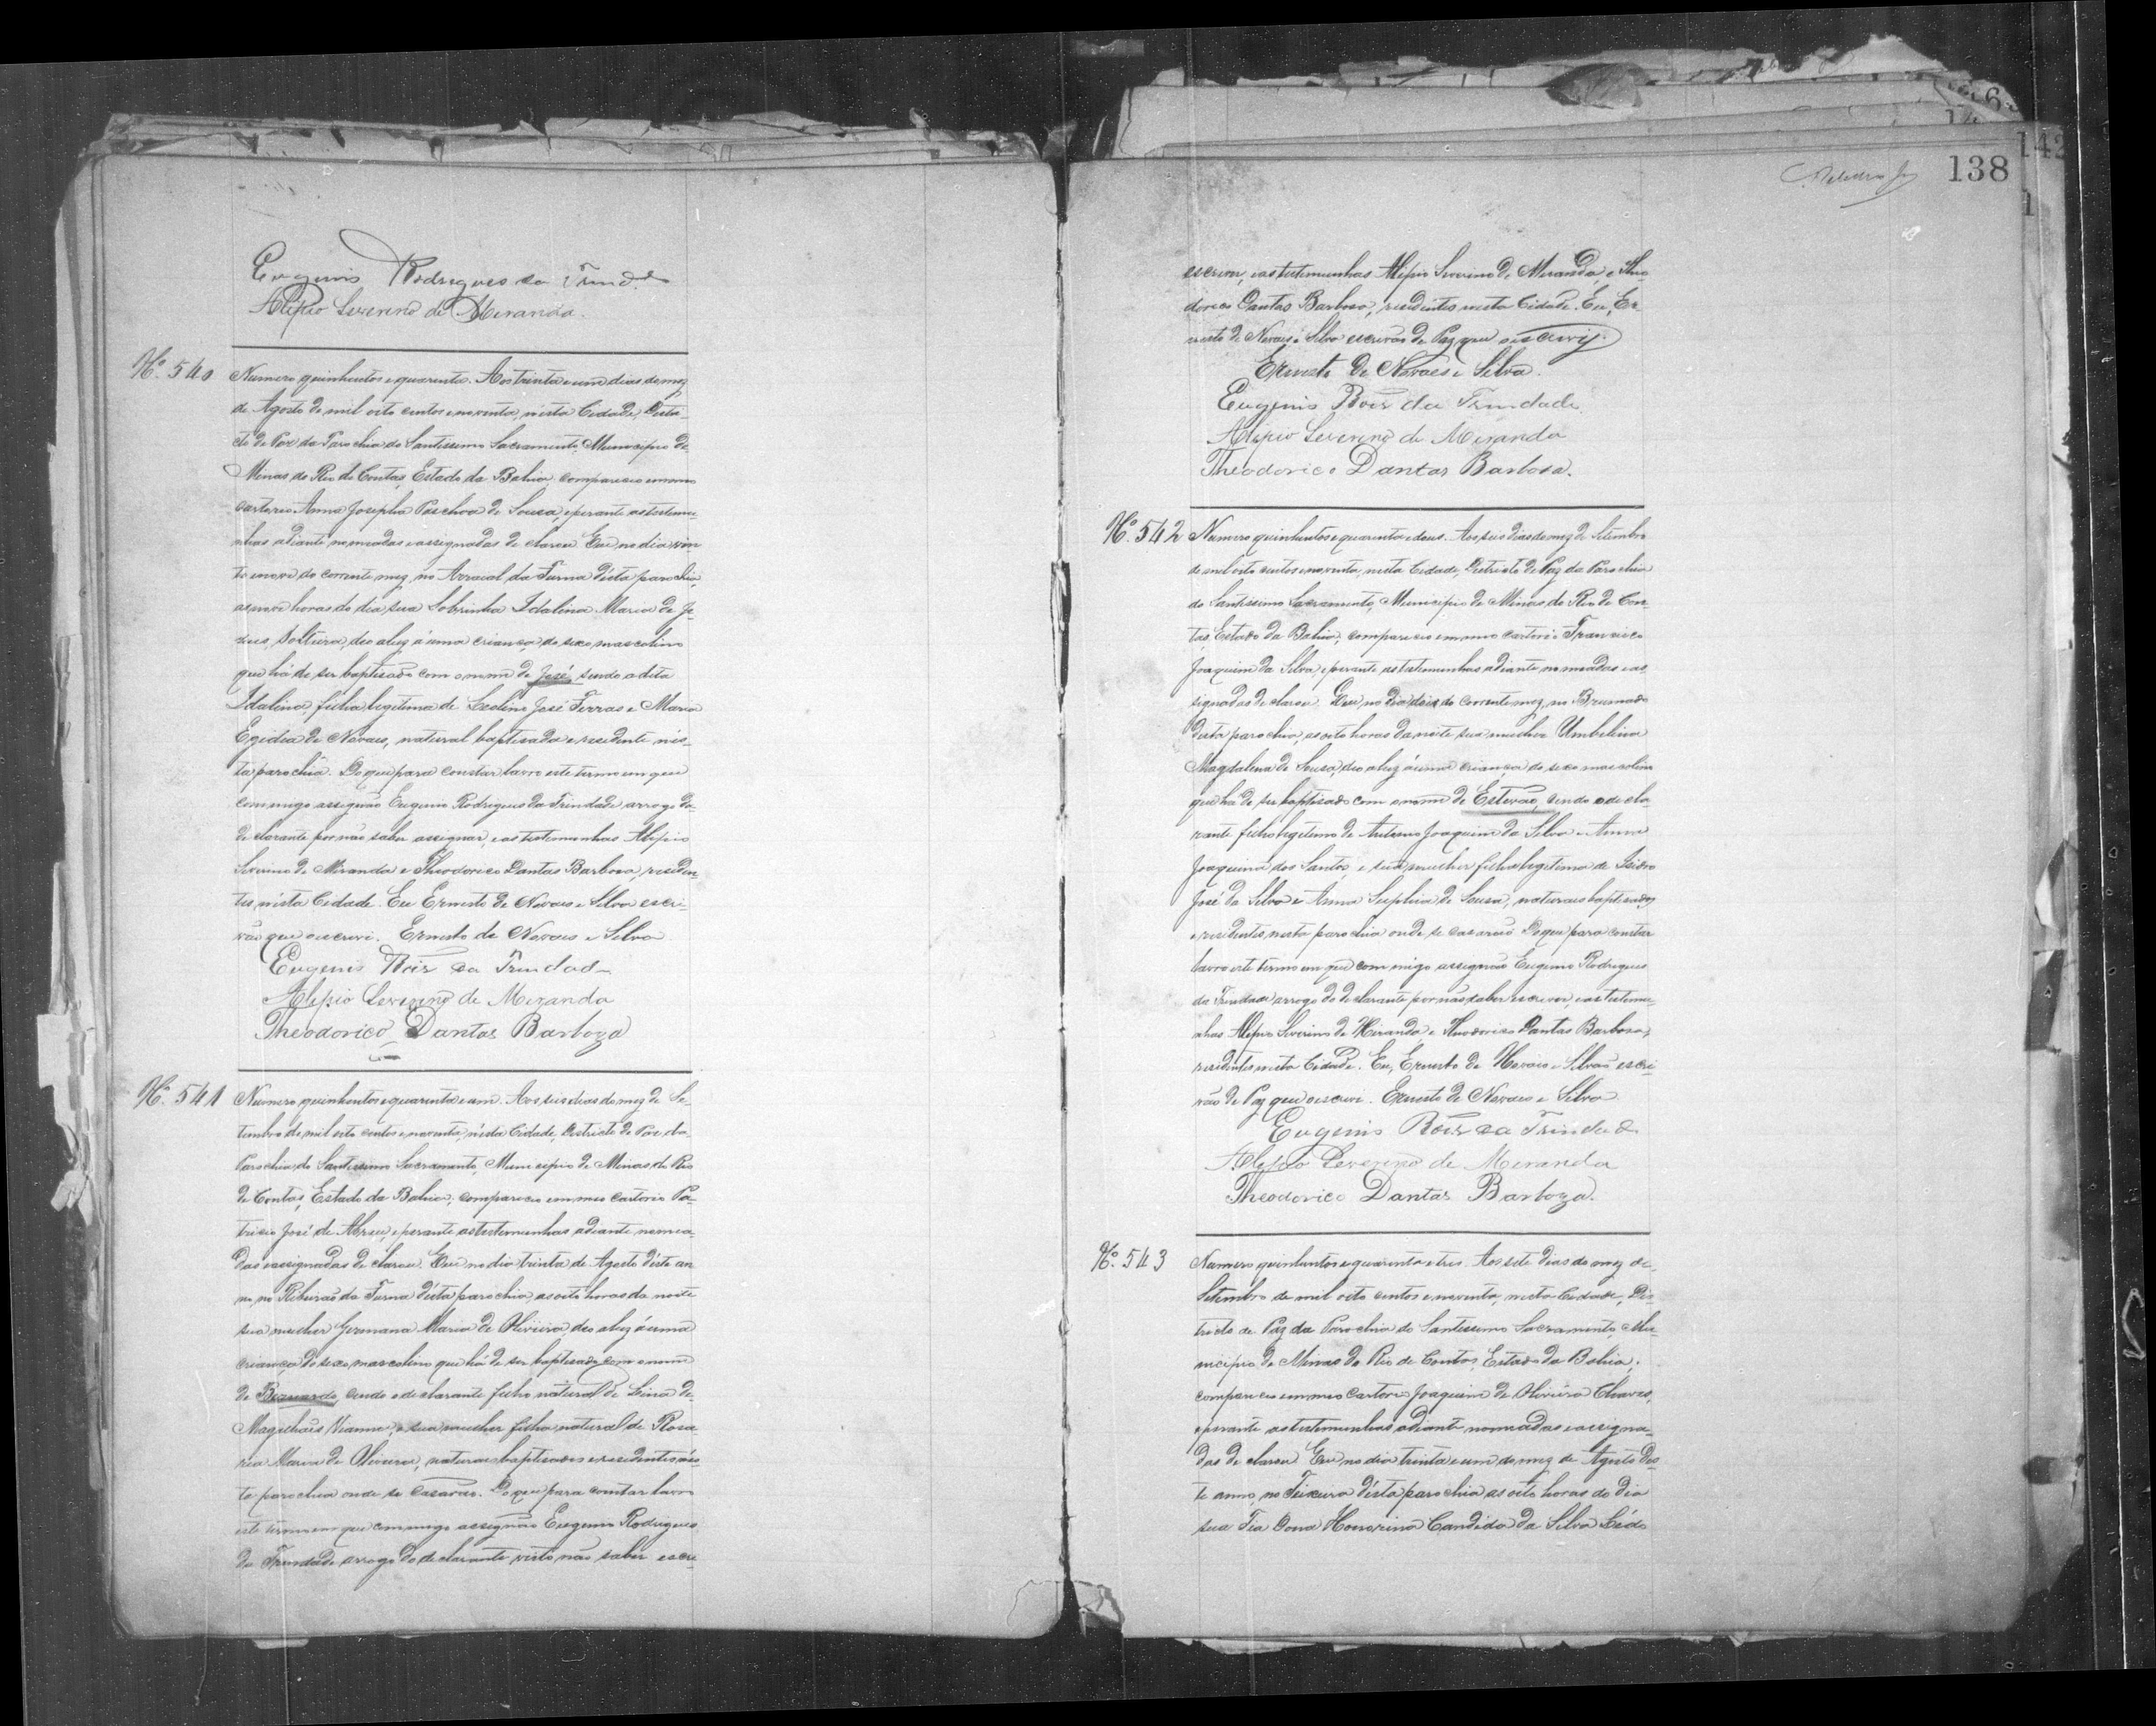 Eugenio Rodrigues da Trind.e
Alipio Severino de Miranda.
Nº. 540 Numero quinhentos e quarenta. Aos trinta e um dias do mez
de Agosto de mil oito centos e noventa, nesta Cidade, Distri-
cto de Paz da Parochia do Santissimo Sacramento, Municipio de
Minas do Rio de Contas, Estado da Bahia, compareceo em meo
cartorio Anna Josepha Paschoa de Sousa, e perante as testemu-
nhas adiante nomeadas e assignadas declarou: Que no dia vin
te e nove do corrente mez, no Arraial da Furna désta parochia,
as nove horas do dia, sua Sobrinha Idalina Maria de Je-
zus, solteira, deo a luz á uma criança do sexo mascolino
que há de ser baptisado com o nome de José, sendo a dita
Idalina filha legitima de José Ferras e Maria
Egidia de Novaes, natural baptisada e residente nés-
ta parochia. Do que para constar lavro este termo em que
commigo assignão Eugenio Rodrigues da Trindade arrogo da
declarante por não saber assignar, e as testemunhas Alipio
Severino de Miranda e Theodorico Dantas Barbosa, residen-
tes, nésta Cidade. Eu Ernesto de Novaes e Silva escri-
vão que o escrevi. Ernesto de Novaes e Silva
Eugenio Roiz da Trindade
Alipio Severino de Miranda
Theodorico Dantas Barboza
Nº. 541 Numero quinhentos e quarenta e um. Aos seis dias do mez de Se-
tembro de mil oito centos e noventa, nésta Cidade, Districto de Paz da
Parochia do Santissimo Sacramento, Municipio de Minas do Rio
de Contas, Estado da Bahia, compareceo em meu Cartorio Pa-
tricio José de Abreu, e perante as testemunhas adiante nomea-
das e assignadas declarou: Que no dia trinta de Agosto déste an
no, no Ribeirão da Furna désta parochia as oito horas da noite
sua mulher Germana Maria de Oliveira, deo a luz á uma
criança do sexo mascolino que há de ser baptisado com o nome
de Bernardo, sendo o declarante filho natural de de
Magalhães Vianna, e sua mulher filha natural de Rosa
Maria de Oliveira, naturaes baptisados e residentes nés-
ta parochia onde se casarão. Do que para constar lavro
este termo em que commigo assignão Eugenio Rodrigues
da Trindade arrogo do declarante visto não saber escre-
138
escrever, e as testemunhas Alipio Severino de Miranda, e Theo
dorico Dantas Barbosa, residentes nesta Cidade. Eu, Er-
nesto de Novaes e Silva escrivão de Paz que o escrevy.
Ernesto de Novaes e Silva.
Eugenio Roiz da Trindade
Alipio Severino de Miranda
Theodorico Dantas Barbosa.
Nº. 542 Numero quinhentos e quarenta e dous. Aos seis dias do mez de Setembro
de mil oito centos e noventa, nesta Cidade, Districto de Paz da Parochia
do Santissimo Sacramento, Municipio de Minas do Rio de Con-
tas, Estado da Bahia, compareceo em meo cartorio Francisco
Joaquim da Silva, e perante as testemunhas adiante nomeadas e as
signadas declarou: Que, no dia do corrente mez, no Brumado
desta parochia, as oito horas da noite sua mulher Umbelina
Magdalena de Sousa, deo a luz á uma criança do sexo mascolino
que há de ser baptisado com o nome de Estevão, sendo o decla
rante filho legitimo de Joaquim da Silva e Anna
Joaquina dos Santos, e sua mulher filha legitima de Isidro
José da Silva e Anna de Sousa, naturaes baptisados
e residentes, nesta parochia onde se casarão. Do que para constar
lavro este termo em que commigo assignão Eugenio Rodrigues
da Trindade arrogo do declarante por não saber escrever e as testemu-
nhas Alipio Severino de Miranda, e Theodorico Dantas Barbosa,
residentes nesta Cidade. Eu, Ernesto de Novaes e Silva escri-
vão de Paz que o escrevi. Ernesto de Novaes e Silva
Eugenio Roiz da Trindade
Alipio Severino de Miranda
Theodorico Dantas Barboza.
Nº. 543 Numero quinhentos e quarenta e tres. Aos sete dias do mez de
Setembro de mil oito centos e noventa, nesta Cidade, Dis-
tricto de Paz da Parochia do Santissimo Sacramento Mu-
nicipio de Minas do Rio de Contas, Estado da Bahia,
compareceo em meo Cartorio Joaquim de Oliveira Chaves,
e perante as testemunhas adiante nomeadas e assigna-
das declarou: Que no dia trinta e um do mez de Agosto des-
te anno, no Teixeira désta parochia as oito horas do dia
sua Tia Dona Honorina Candida da Silva Lédo